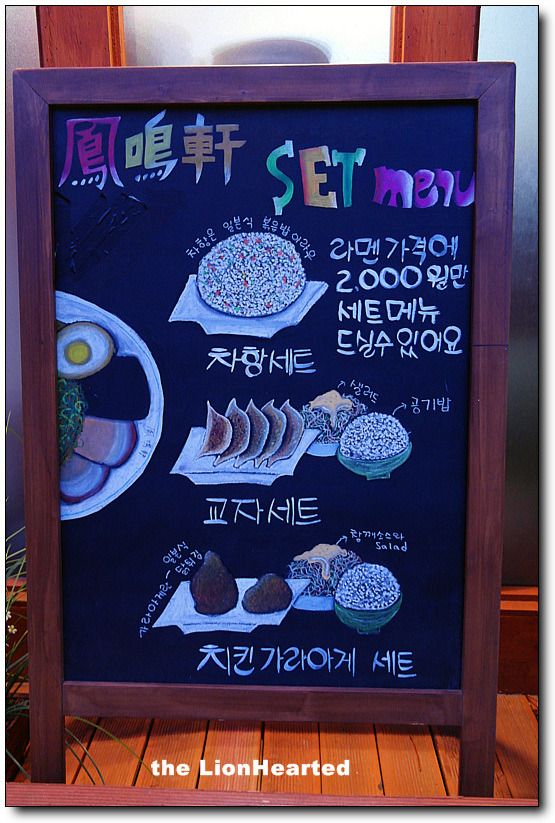 鳳鳴軒
SET menu
차항은 일본식 볶음밥이라오
라멘가격에
2,000원만
세트메뉴
드실수있어요
차항세트
샐러드
공기밥
교자세트
참깨소스와
Salad
가라아게란 - 일본식
닭튀김
치킨가라아게 세트
the LionHearted